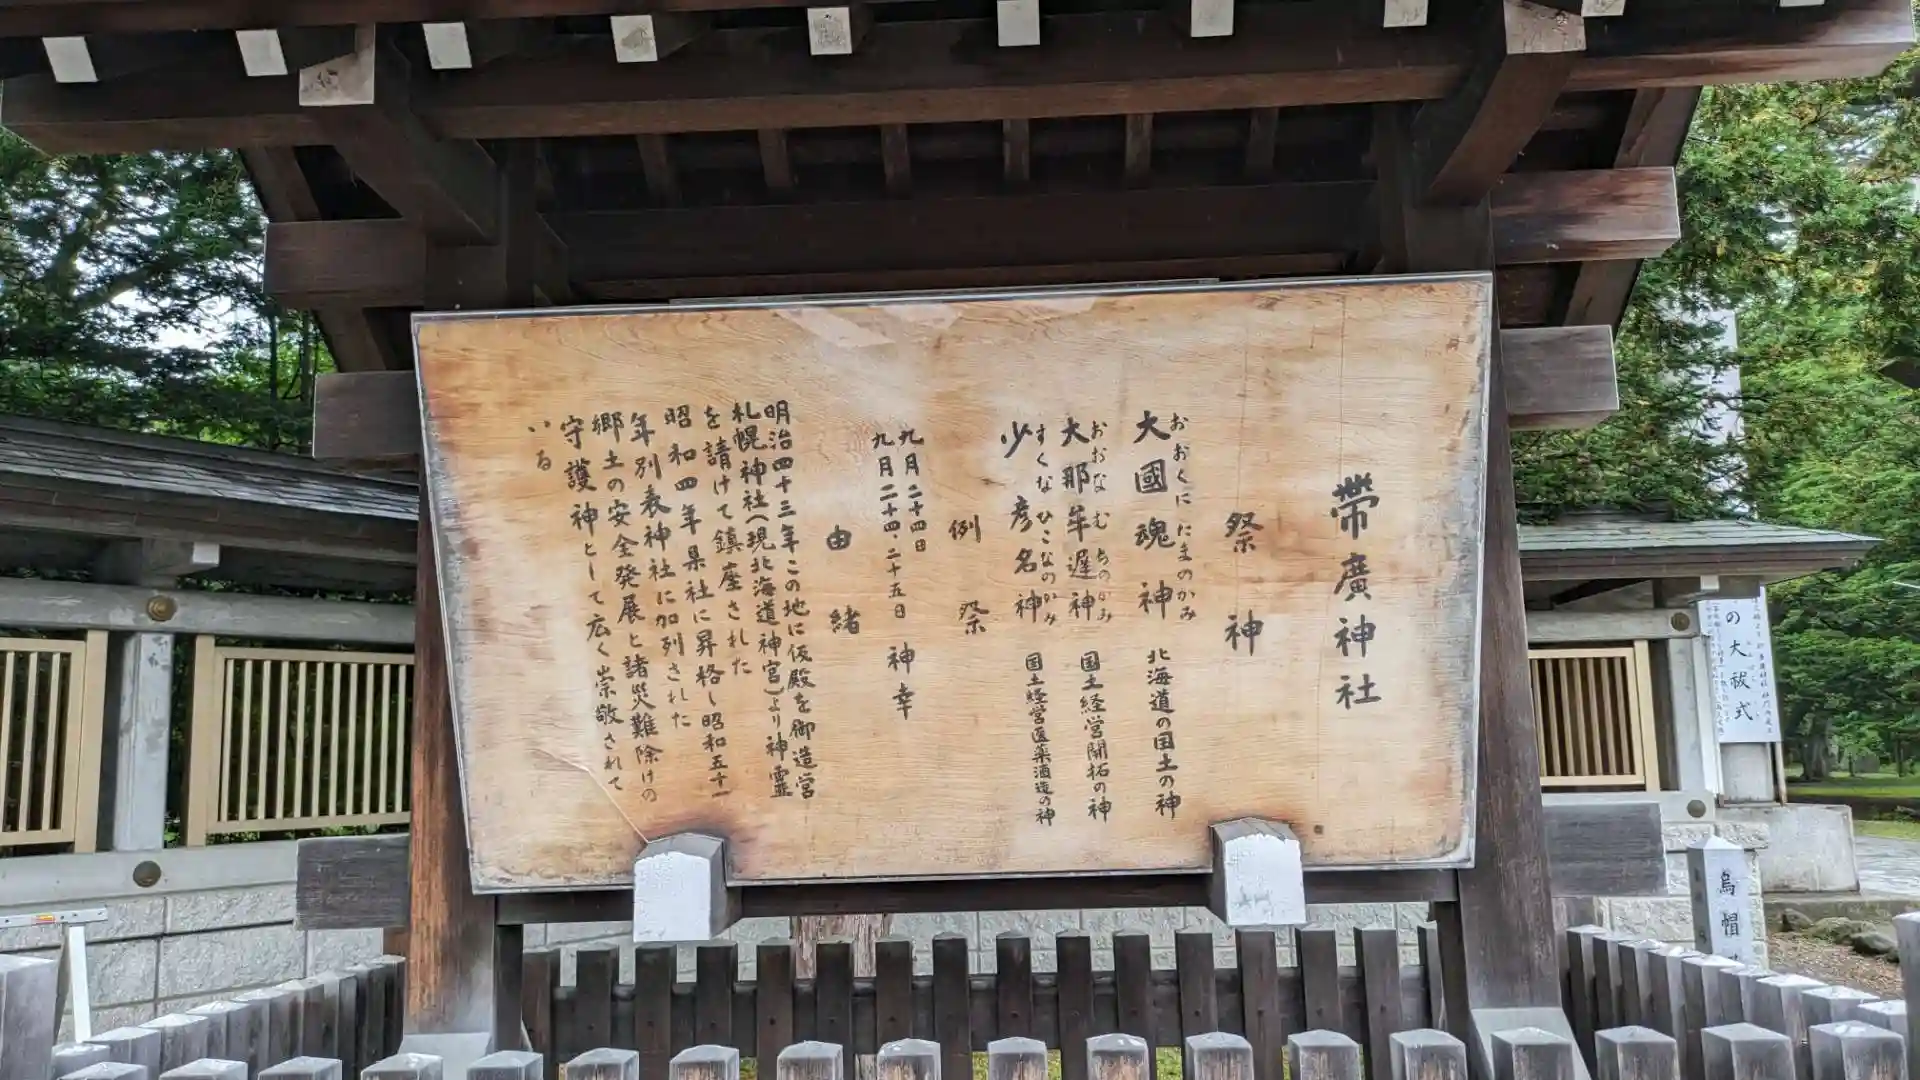 帶廣神社
祭神
おおくにたまのかみ
大國魂神 北海道の国土の神
おおなむちのかみ
大那牟遅神 国土経営開拓の神
すくなひこなのかみ
少彦名神 国土経営医薬酒造の神
例祭
九月二十四日
九月二十四、二十五日 神幸
由緒
明治四十三年この地に仮殿を御造営
札幌神社(現北海道神宮)より神霊
を請けて鎮座された
昭和四年県社に昇格し昭和五十一
年別表神社に加列された
郷土の安全発展と諸災難除けの
守護神として広く崇敬されて
いる
の大祓式
烏帽